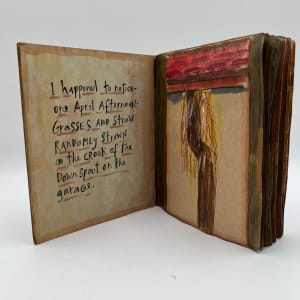 I happened to notice
one April Afternoon
Grasses and straw
Randomly strewn
in the crook of the
Downspout on the
garage.